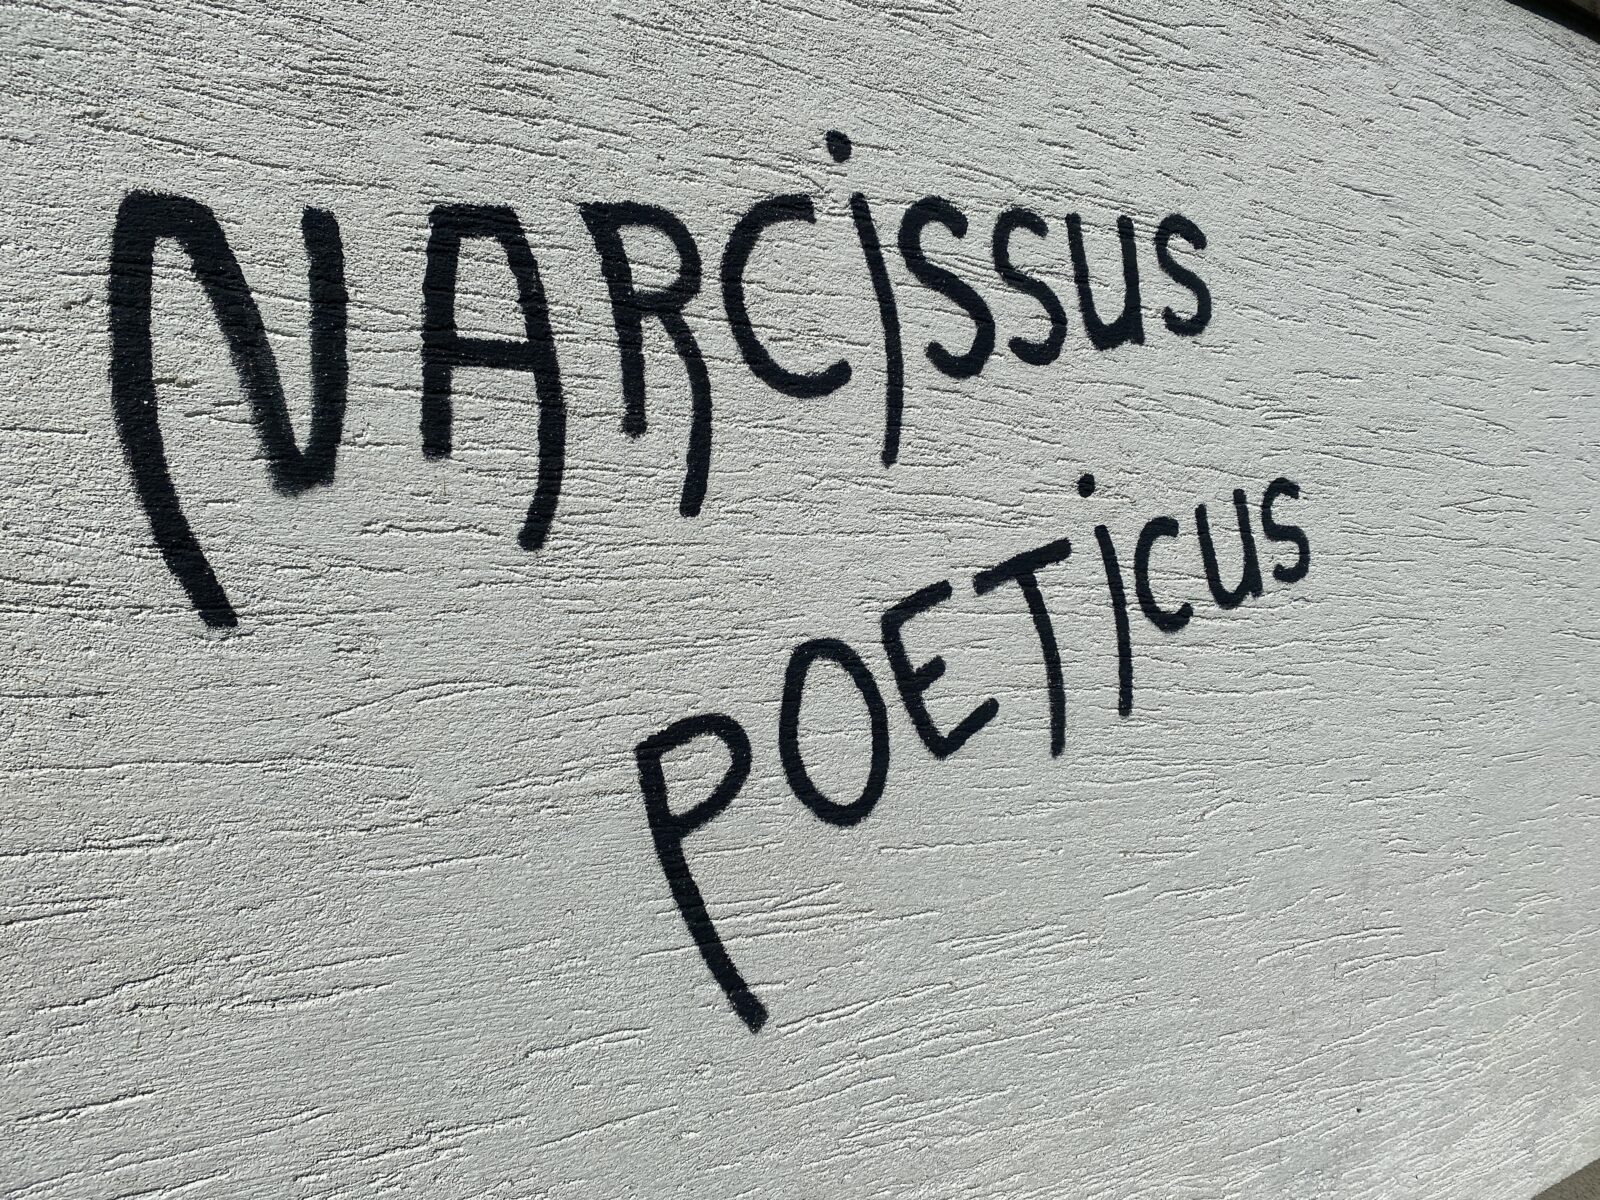 NARCissus
POETicus